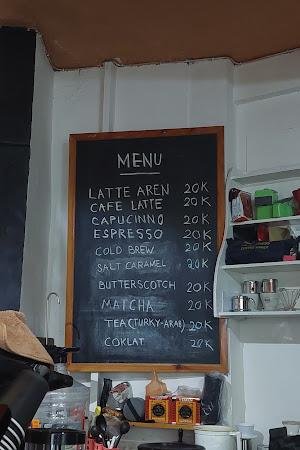 MENU
LATTE AREN 20K
CAFE LATTE 20K
CAPUCINNO 20K
ESPRESSO 20K
COLD BREW 20K
SALT CARAMEL 20K
BUTTERSCOTCH 20K
MATCHA 20K
TEA (TURKY-ARAB) 20K
COKLAT 20K